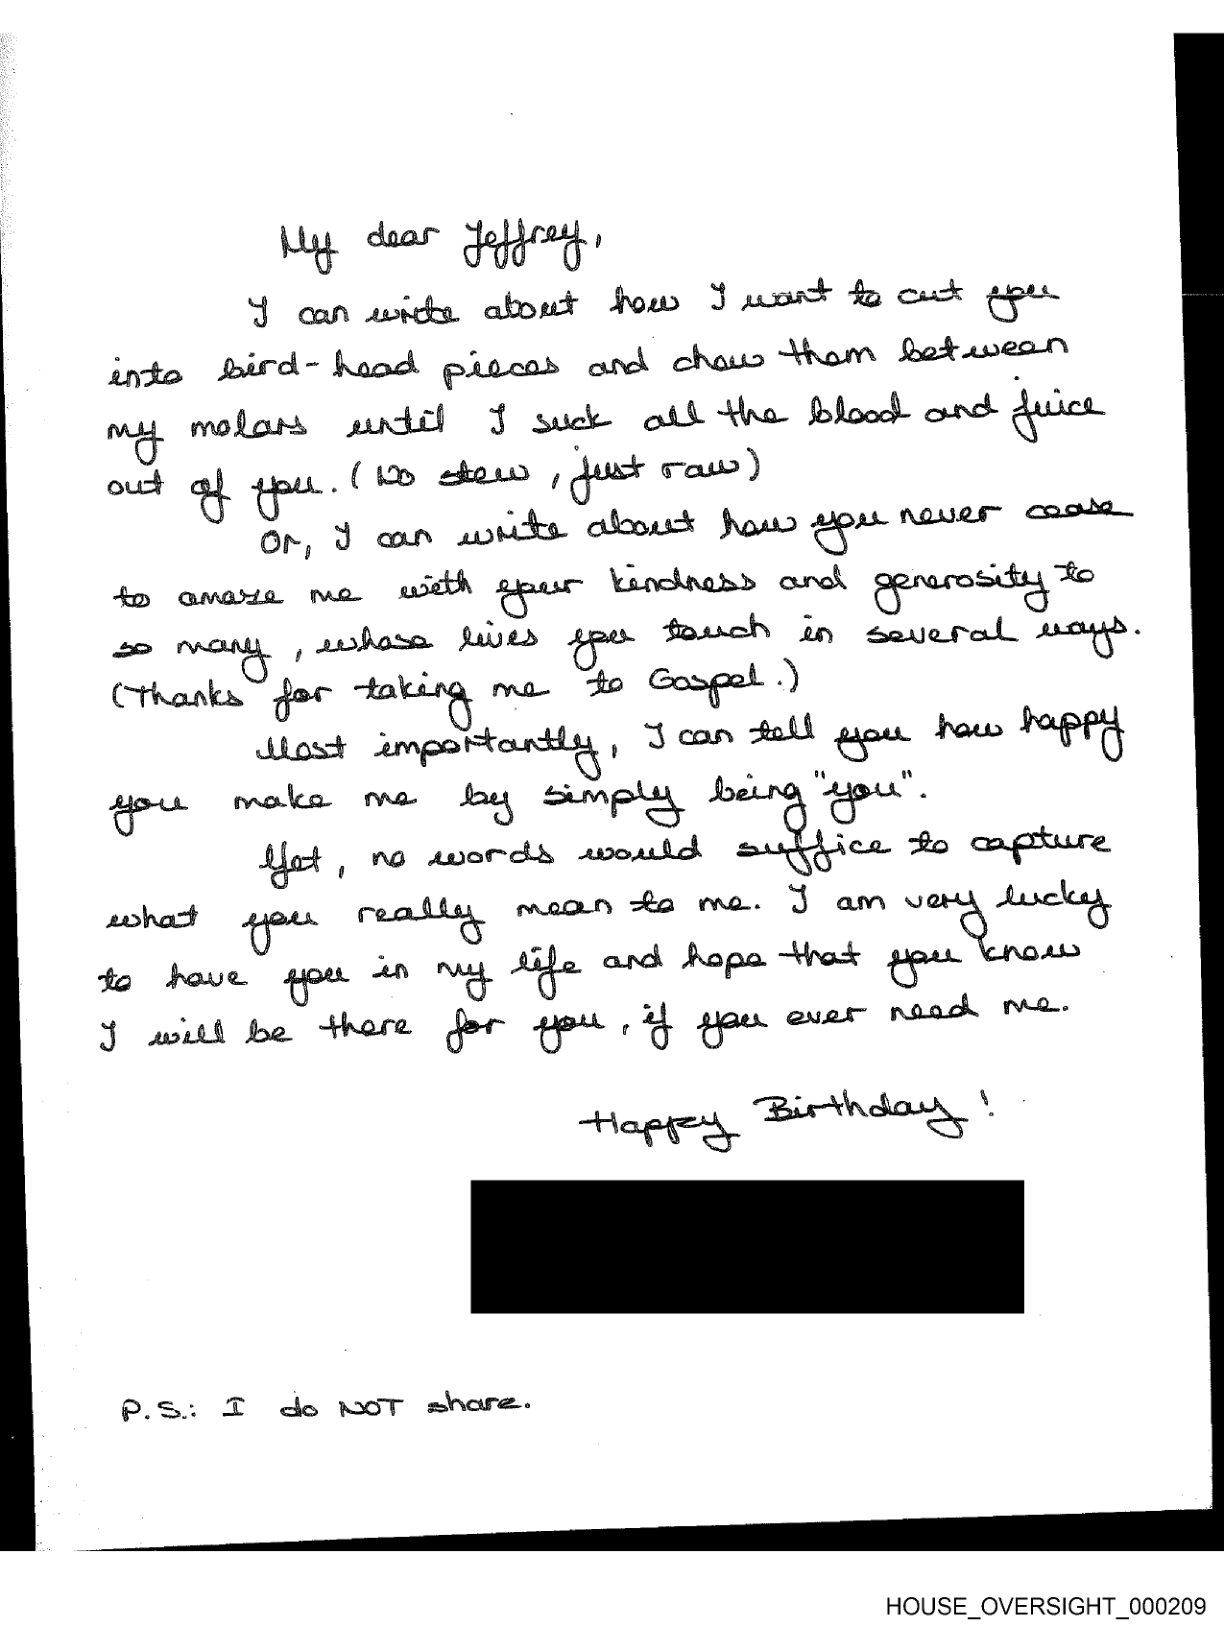 My dear Jeffrey,
I can write about how I want to cut you
into bird-head pieces and chew them between
my molars until I suck all the blood and juice
out of you. (No stew, just raw)
Or, I can write about how you never cease
to amaze me with your kindness and generosity to
so many, whose lives you touch in several ways.
(Thanks for taking me to Gospel.)
Most importantly, I can tell you how happy
you make me by simply being "you".
Yet, no words would suffice to capture
what you really mean to me. I am very lucky
to have you in my life and hope that you know
I will be there for you, if you ever need me.
Happy Birthday!
P.S.: I do NOT share.
HOUSE_OVERSIGHT_000209